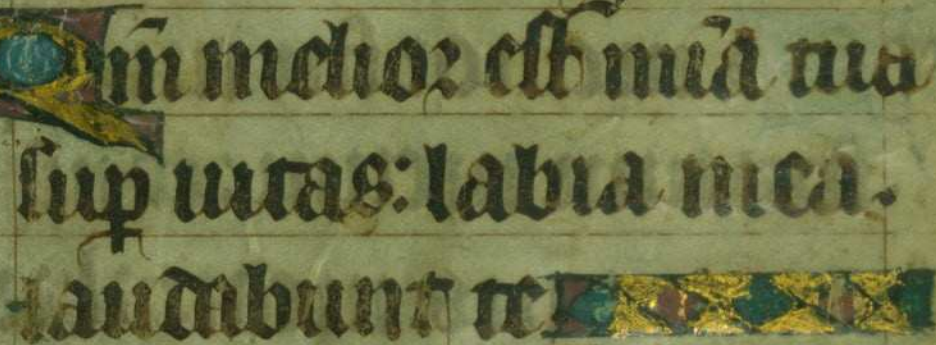 Qm̄ melior est mīa tua
suꝑ uitas: labia mea.
laudabunt te